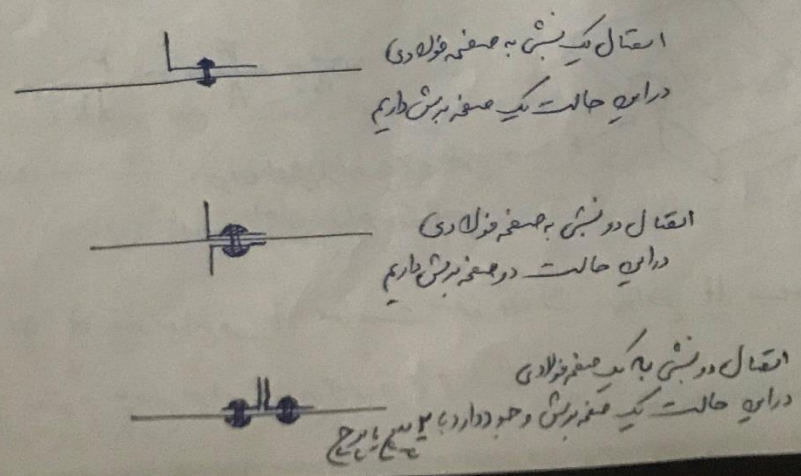 اتصال یک نبشی به صفحه فولادی
دراین حالت یک صفحه برش داریم
اتصال دو نبشی به صفحه فولادی
دراین حالت دو صفحه برش داریم
اتصال دو نبشی به یک صفحه فولادی
دراین حالت یک صفحه برش وجود دارد با ۲ پیچ یا پرچ